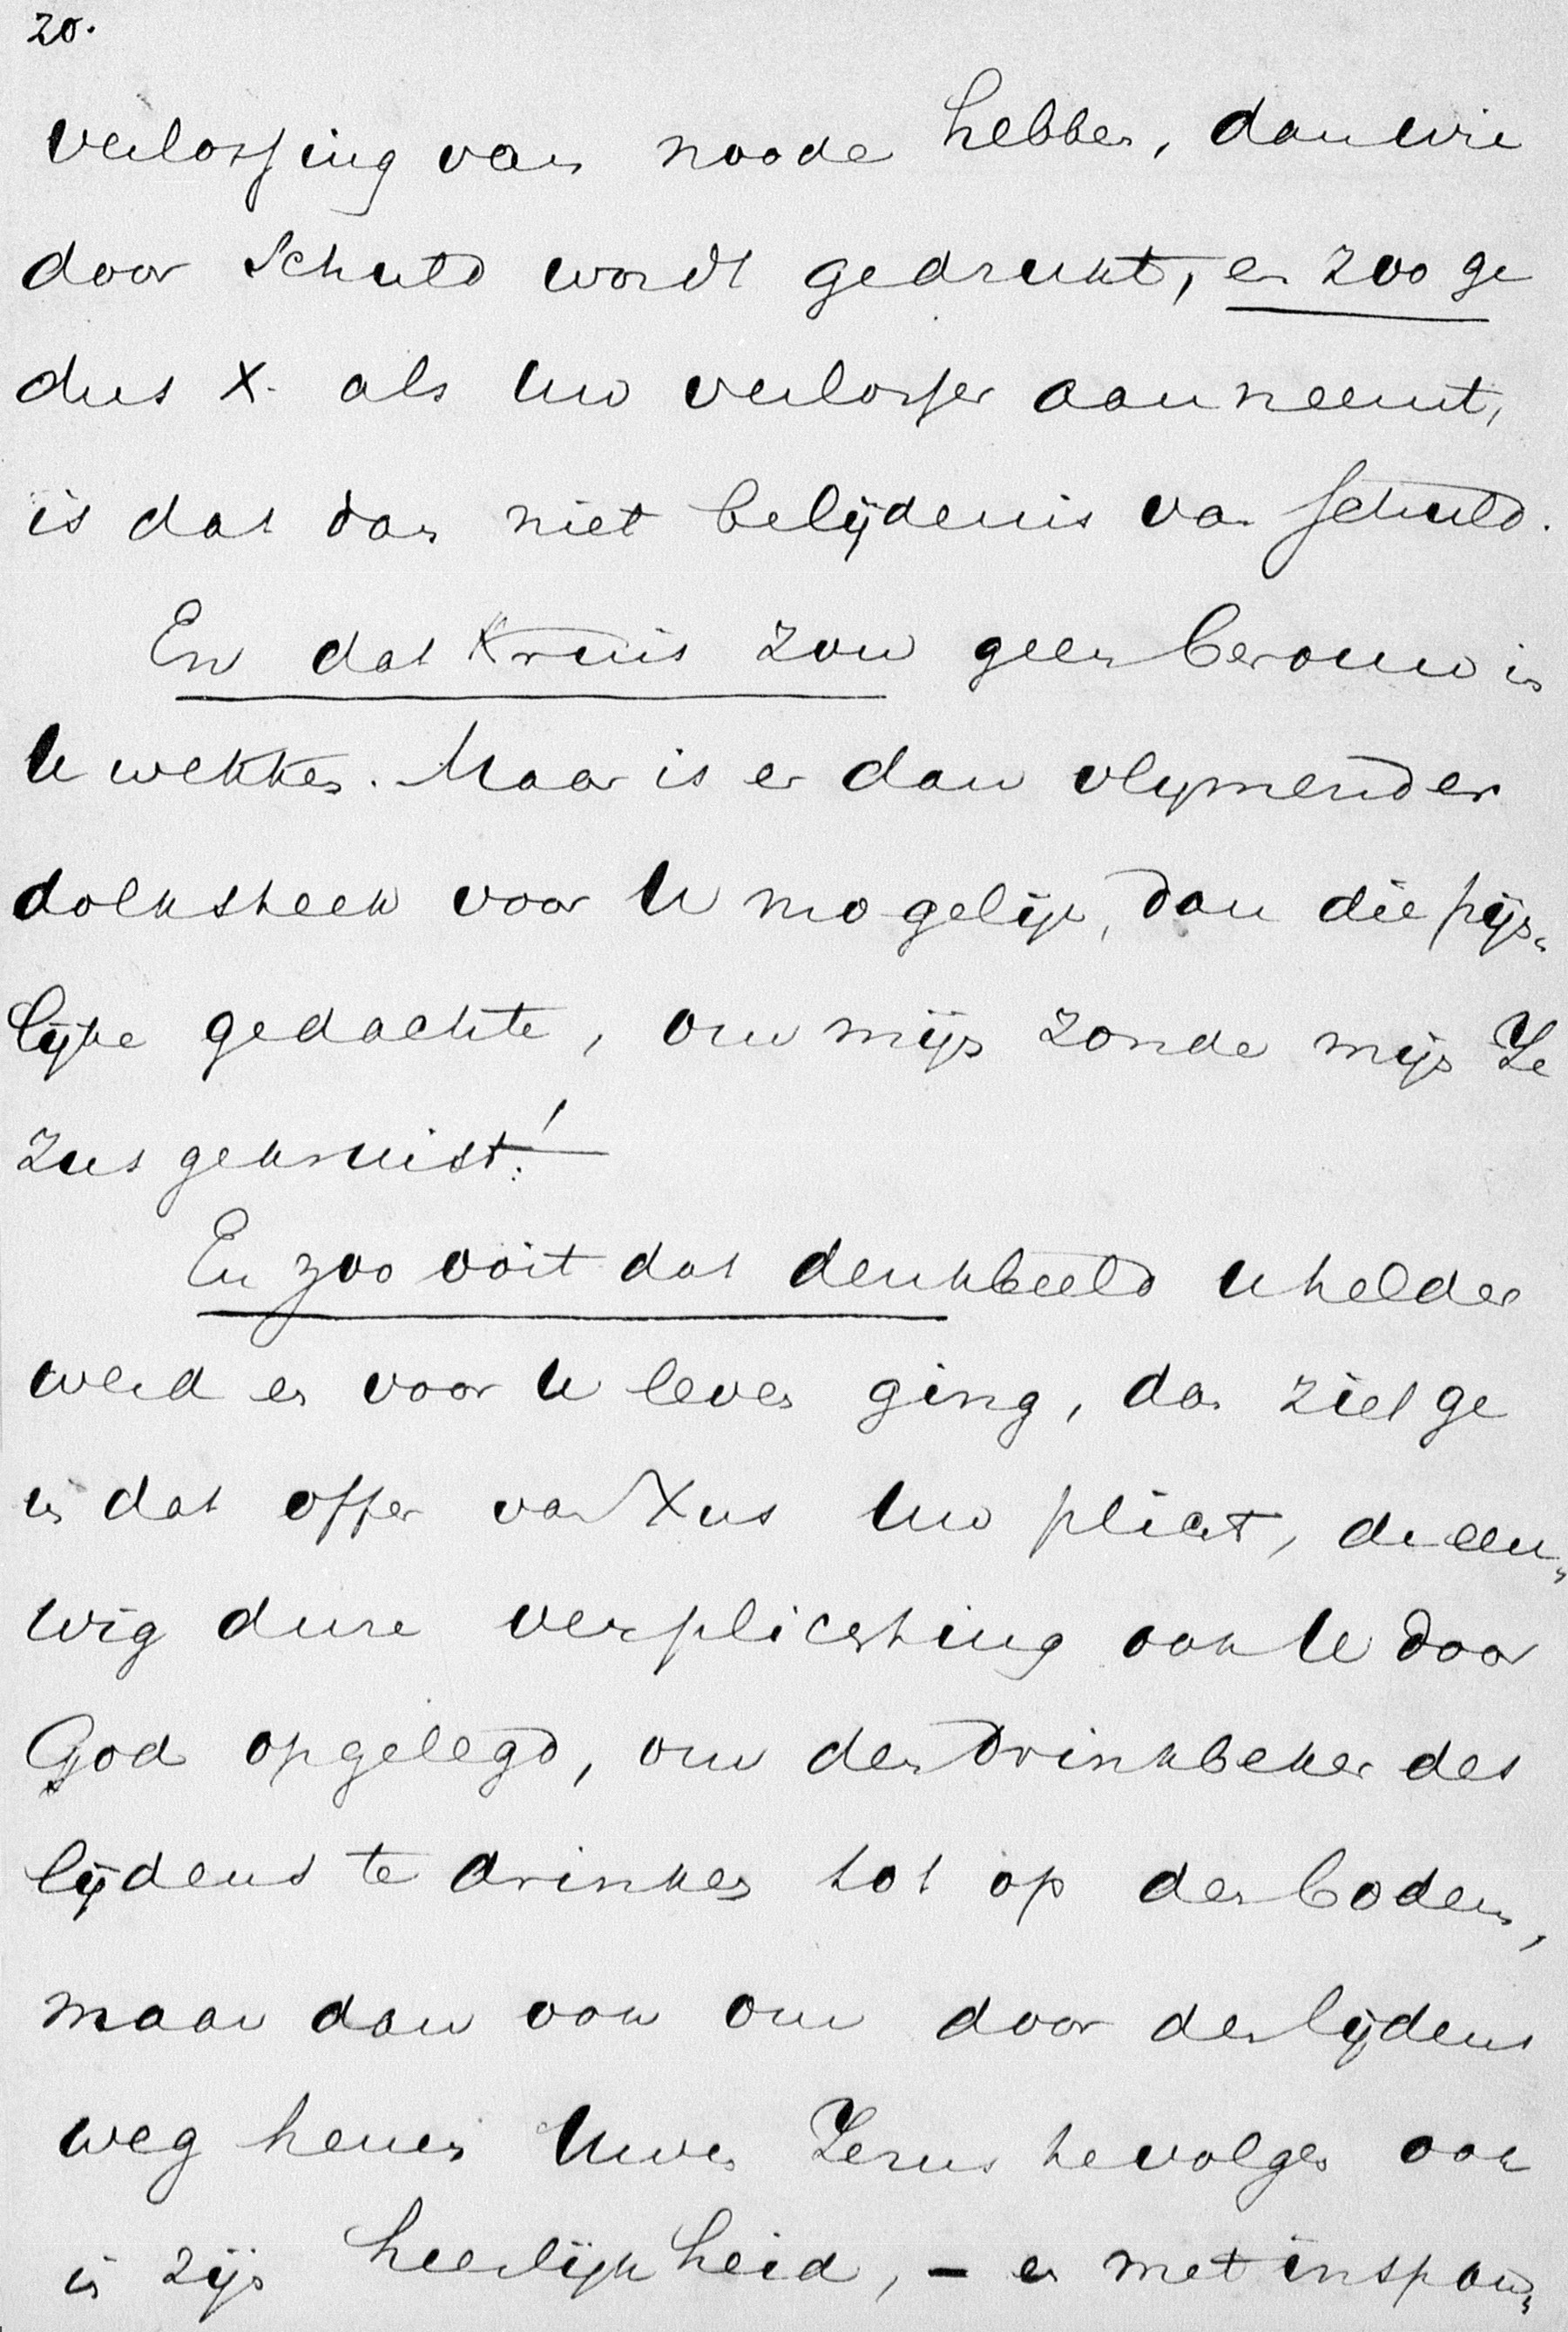 20.
verlossing van noode hebben, dan wie
door Schuld wordt gedrukt, en zoo ge
dus X. als Uw verlosser aanneemt,
is dat dan niet belijdenis van schuld.
En dat Kruis zou geen berouw in
U wekken. Maar is er dan vlijmender
dolksteek voor U mogelijk, dan die pijn„
lijke gedachte, om mijn zonde mijn Je
zus gekruist!
En zoo ooit dat denkbeeld u helder
werd en voor U leven ging, dan ziet ge
in dat offer van Xus Uw plicht, de eeu„
wig dure verplichting ook U door
God opgelegd, om den drinkbeker des
lijdens te drinken tot op den bodem,
maar dan ook om door den lijdens
weg henen Uwen Jezus te volgen ook
in zijn heerlijkheid, – en met inspan„